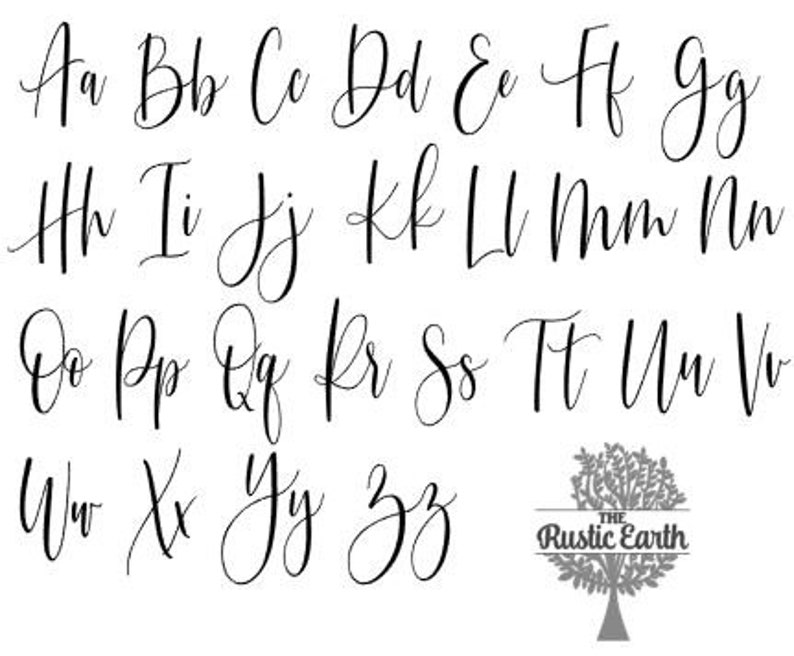 Aa Bb Cc Dd Ee Ff Gg
Hh Ii Jj Kk Ll Mm Nn
Oo Pp Qq Rr Ss Tt Uu Vv
Ww Xx Yy Zz
THE
Rustic Earth